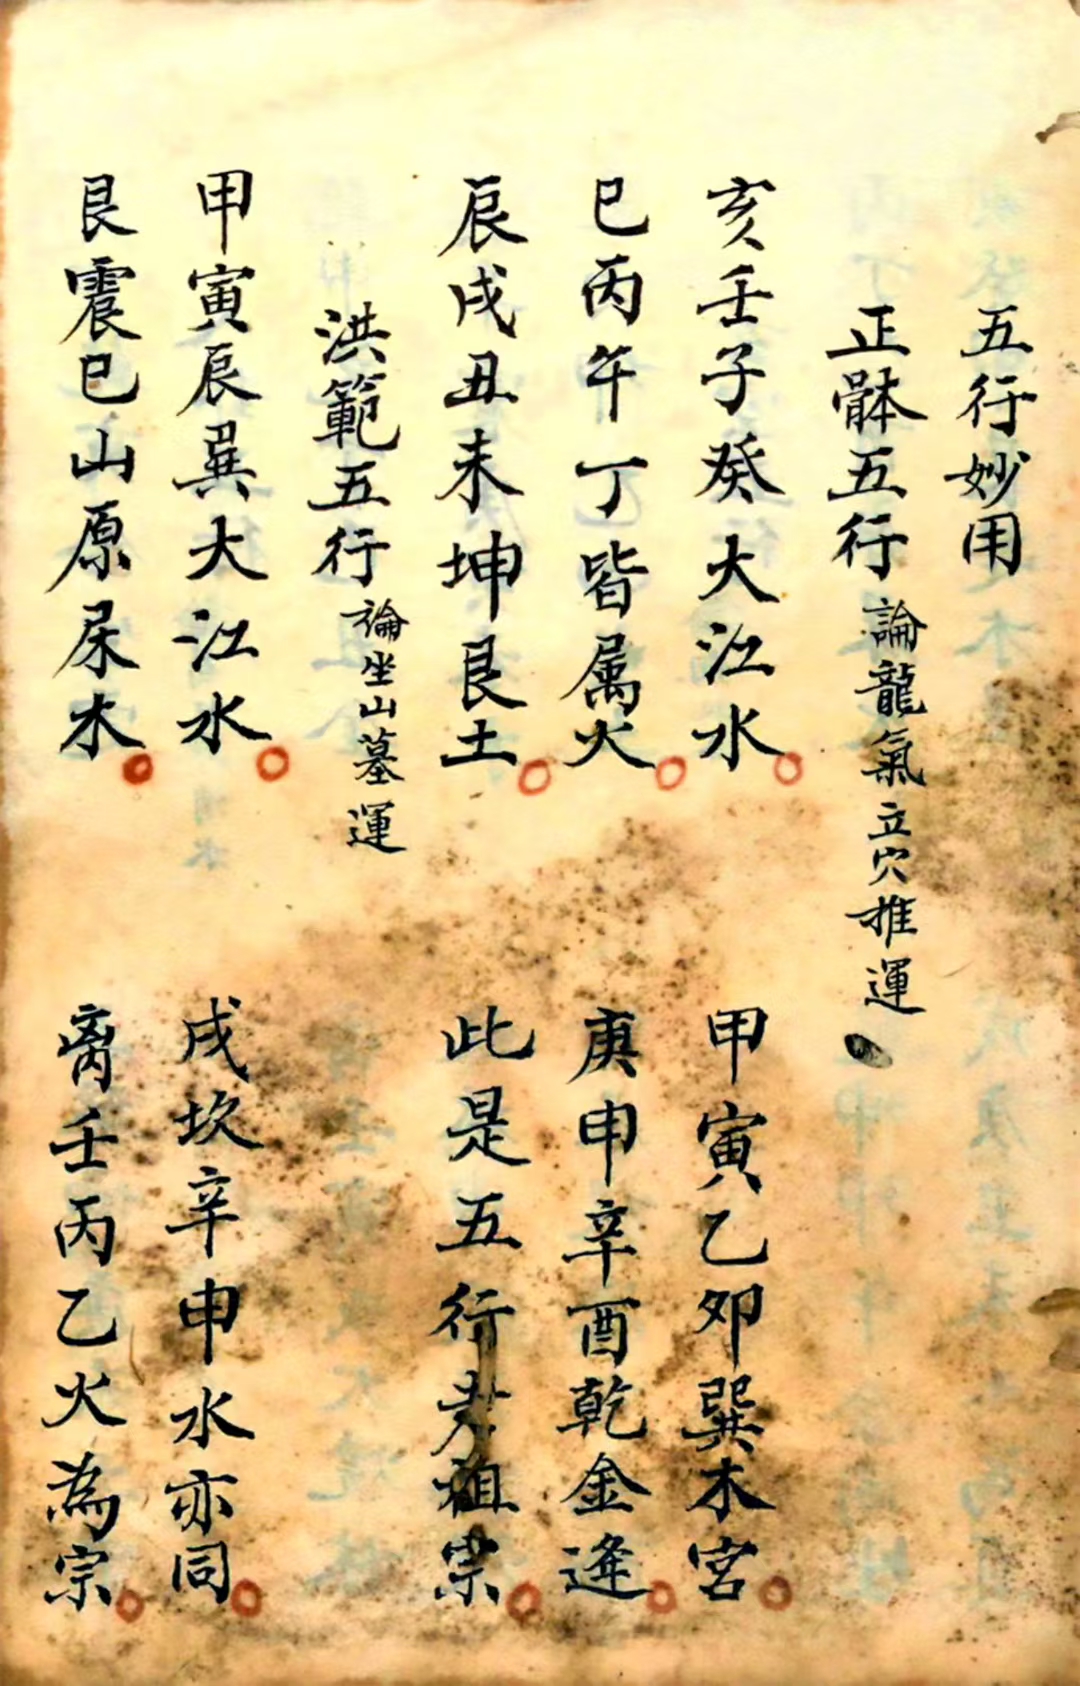 五行妙用
正骵五行 論龍氣立穴推運
亥壬子癸大江水 甲寅乙卯巽木宮
巳丙午丁皆属火 庚申辛酉乾金逢
辰戌丑未坤艮土 此是五行祖宗
洪範五行 論坐山墓運
甲寅辰巽大江水 戌坎辛申水亦同
艮震巳山原屬木 离壬丙乙火為宗